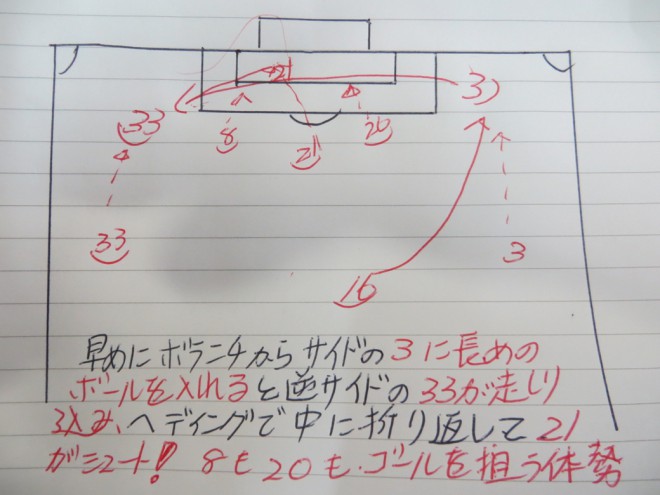 21
3
33
8
21
20
33
3
16
早めにボランチからサイドの3に長めの
ボールを入れると逆サイドの33が走り
込み、ヘディングで中に折り返して21
がシュート! 8も20も、ゴールを狙う体勢